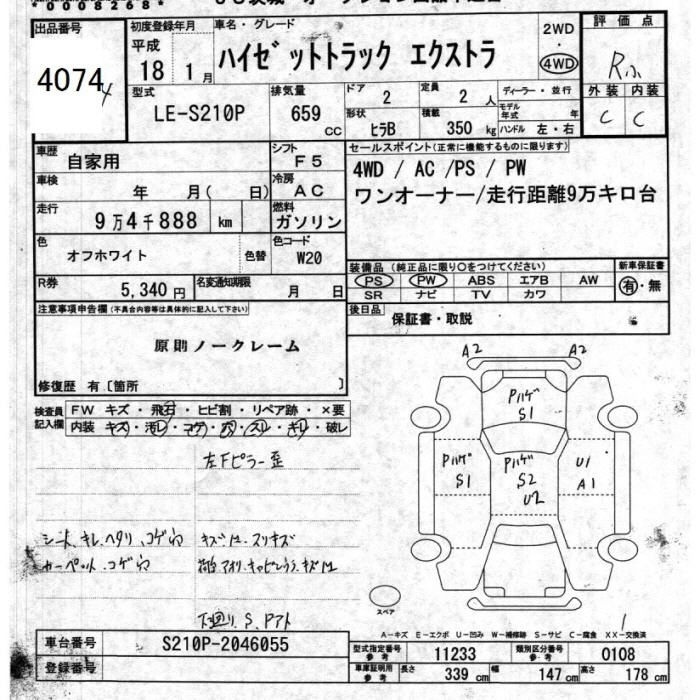 出品番号 初度登録年月 車名・グレード 2WD 評価点
4074 平成 18 1月 ハイゼットトラック エクストラ 4WD R
型式 排気量 ドア 定員 ディーラー・並行 外装 内装
LE-S210P 659 cc 2 2人 モデル年式 年 C C
形状 積載 ハンドル 左・右
ヒラB 350 kg
車歴 自家用 シフト F5 セールスポイント(正常に機能するものに限ります)
車検 年 月( 日) 冷房 AC 4WD / AC /PS / PW
走行 9万4千888 km 燃料 ガソリン ワンオーナー/走行距離9万キロ台
色 オフホワイト 色替 色コード W20
装備品(純正品に限り○をつけてください) 新車保証書
R券 5,340円 名変通知期限 月 日 PS PW ABS エアB AW 有・無
SR ナビ TV カワ
注意事項申告欄(不具合内容等は具体的に記入して下さい) 後日品 保証書・取説
原則ノークレーム
修復歴 有〔箇所 〕
A2 A2
検査員記入欄 FW キズ・飛石・ヒビ割・リペア跡・×要
内装 キズ・汚レ・コゲ・穴・スレ・キレ・破レ
Pハゲ S1
左Fピラー歪
Pハゲ S1 Pハゲ S2 U2 U1 A1
シート キレ、ヘタリ、コゲ穴 キズM・スリキズ
カーペット、コゲ穴
下廻り、S、Pアト
スペア
A−キズ E−エクボ U−凹ミ W−補修跡 S−サビ C−腐食 XX−交換済
車台番号 S210P-2046055 型式指定番号 参考 11233 類別区分番号 参考 0108
登録番号 車庫証明用 参考 長さ 339 cm 幅 147 cm 高さ 178 cm